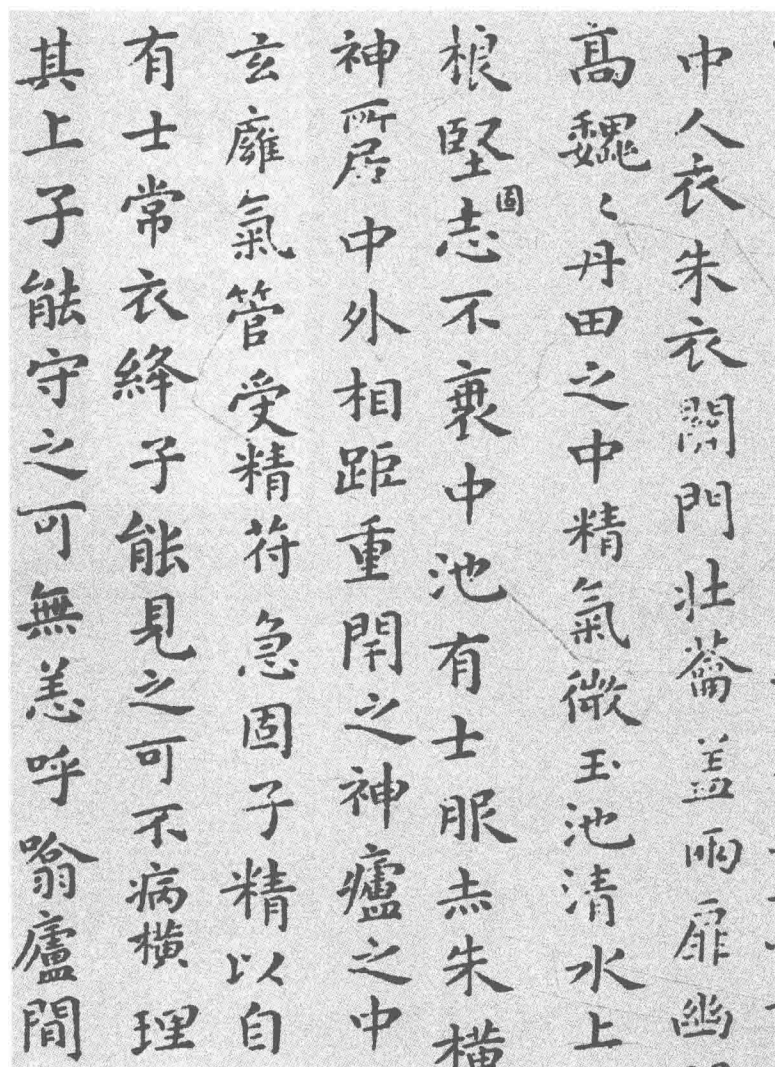 中人衣朱衣關門壯蘥盖兩扉幽
高巍〻丹田之中精氣微玉池清水上
根堅志固不衰中池有士服赤朱橫
神所居中外相距重閇之神廬之中
玄廱氣管受精苻急固子精以自
有士常衣絳子能見之可不病橫理
其上子能守之可無恙呼噏廬間